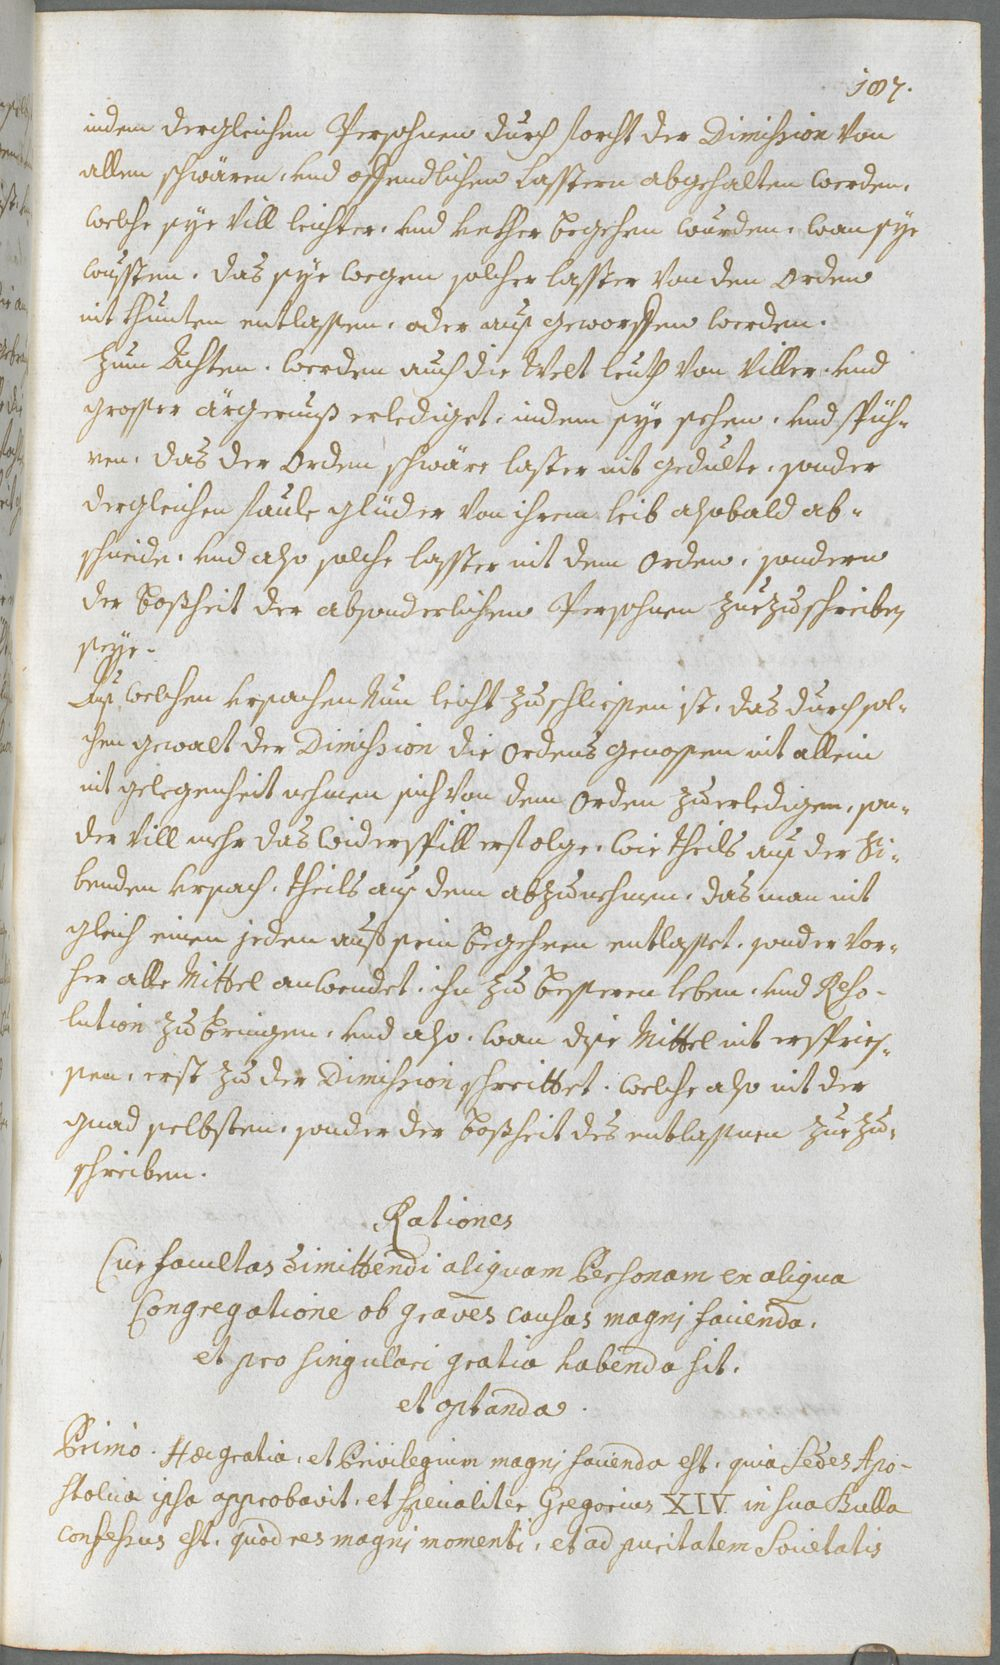 187.
indem dergleichen Persohnen durch forcht der Dimission von
allen schwären, und offendlichen Lasstern abgehalten werden,
welche sye vill leichter, und kether begehen wurden, wan sye
wussten, das sye wegen solcher lasster von den Orden
nit khunten entlassen, oder auß geworffen werden.
Zum Achten, werden auch die Welt leuth von viller, und
grosser ärgernuß erlediget, indem sye sehen, und spüh-
ren, das der Orden schwäre laster nit gedulte, sonder
dergleichen faule glüder von ihrem leib alsobald ab-
schneide, und also solche lasster nit dem Orden, sondern
der Boßheit der absonderlichen Persohnen zuezuschreiben
seye.
Auß welchen ursachen nun leicht zu schliessen ist, das durch sol-
chen gewalt der Dimission die Ordens genossen nit allein
nit gelegenheit nehmen sich von dem Orden zu erledigen, son-
der vill mehr das widerspill erfolge, wie theils auß der Si-
benden ursach, theils auß dem abzunehmen, das man nit
gleich einen jeden auß sein begehren entlasset, sonder vor-
her alle Mittel anwendet, ihn zu besseren leben, und Reso-
lution zu bringen, und also, wan dise Mittel nit erspries-
sen, erst zu der Dimission schreittet, welche also nit der
gnad selbsten, sonder der Boßheit des entlassnen zuezu-
schreiben.
Rationes
Cur facultas dimittendi aliquam Personam ex aliqua
Congregatione ob graves causas magni facienda,
et pro singulari gratia habenda sit,
et optanda.
Primo. Hæc gratia, et Privilegium magni facienda est, quia Sedes Apo-
stolica ipsa approbavit, et specialiter Gregorius XIV in sua Bulla
confessus est, quòd res magni momenti, et ad puritatem Societatis